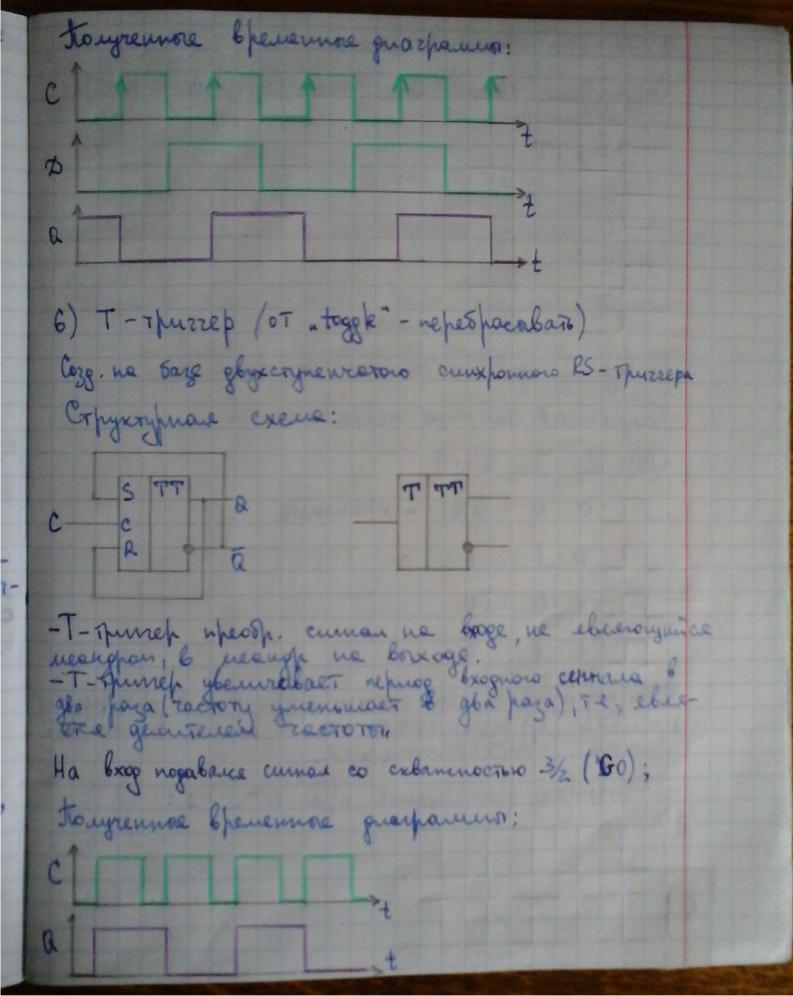 Полученные временные диаграммы:
C
t
D
t
Q
t
6) Т-триггер (от „toggle" - перебрасывать)
Созд. на базе двухступенчатого синхронного RS-триггера
Структурная схема:
S TT
C C
R
Q
Q̅
T TT
-Т-триггер преобр. сигнал на входе, не являющийся
меандром, в меандр на выходе.
-Т-триггер увеличивает период входного сигнала в
два раза (частоту уменьшает в два раза), т.е. явля-
ется делителем частоты.
На вход подавался сигнал со скважностью 3/2 (G0);
Полученные временные диаграммы:
C
t
Q
t